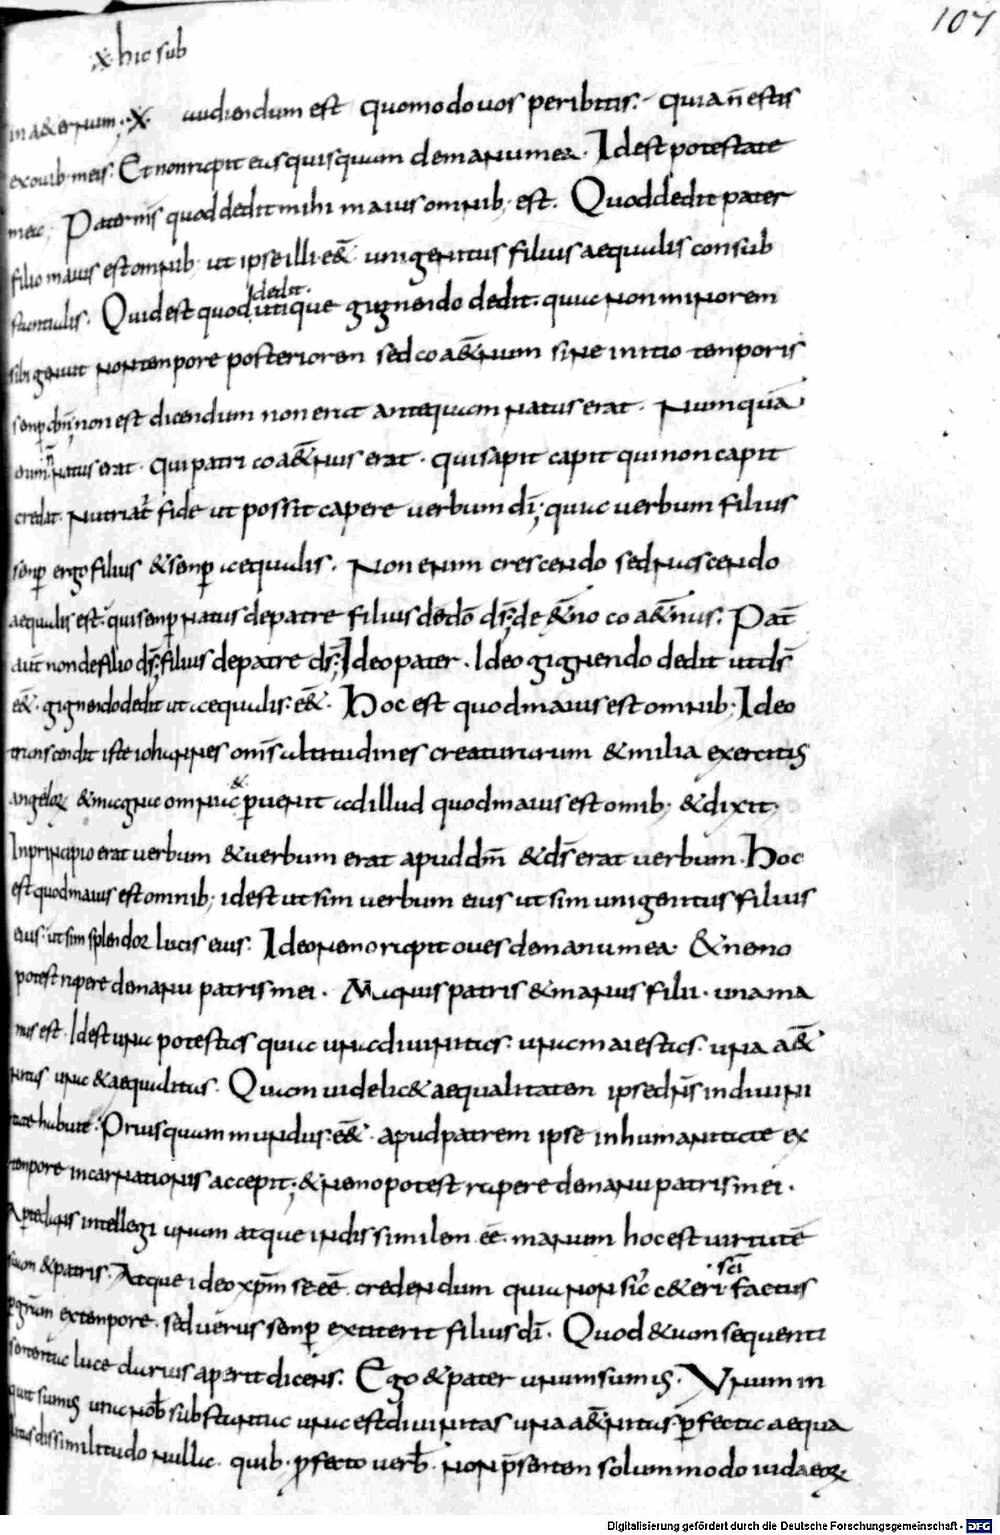 107
x hic sub
in aet&ernum; x audiendum est quomodo vos peribitis. quia n̄ estis
ex ovib; meis. Et non rapit eas quisquam de manu mea. Id est potestate
mea; Pater m̄s quod dedit mihi maius omnib; est. Quod dedit pater
filio maius est omnib; ut ipse illi e&̄ unigenitus filius aequalis consub
stantialis. Quid est quod dedit.
utique gignendo dedit. quia non minorem
sibi genuit non tempore posteriorem sed coa&̄num sine initio temporis
non est dicendum non erat antequam natus erat. Numquā
natus erat. qui patri coa&̄nus erat. qui sapit capit qui non capit
credat. Nutriat̄ fide ut possit capere verbum dī; quia verbum filius
semp̄ ergo filius & semp̄ aequalis. Non enim crescendo sed nascendo
aequalis est. qui semp̄ natus de patre filius de dō ds̄; de &̄no coa&̄nus. Pat̄
aut̄ non de filio ds̄; filius de patre ds̄; Ideo pater. Ideo gignendo dedit ut ds̄
e&̄. gignendo dedit ut aequalis e&̄. Hoc est quod maius est omnib; Ideo
transcendit iste iohannes om̄s altitudines creaturarum & milia exercitus
angeloꝝ & magna omnia & p̄venit ad illud quod maius est omib; & dixit;
In principio erat verbum & verbum erat apud dm̄ & ds̄ erat verbum. Hoc
est quod maius est omnib; id est ut sim verbum eius ut sim unigenitus filius
eius. ut sim splendor lucis eius. Ideo nemo rapit oves de manu mea. & nemo
potest rapere de manu patris mei. Manus patris & manus filii. una ma
nus est. Id est una potestas quia una divinitas. una maiestas. una a&̄
nitas una & aequalitas. Quam videlic& aequalitatem ipse dn̄s in divini
tate habuit. Priusquam mundus e&̄. apud patrem ipse in humanitate ex
tempore incarnationis accepit; & nemo potest rapere de manu patris mei.
Aperte datur intellegi unam atque indissimilem ēē manum hoc est virtutē
suam & patris. Atque ideo xp̄m se ēē credendum quia non sic̄ c&eri sc̄i factus
p̄ gratiam ex tempore. sed verus semp̄ extiterit filius dī. Quod &iam sequenti
sententia luce clarius aperit dicens. Ego & pater unum sumus. Unum in
quit sumus una nob̄ substantia una est divinitas una a&̄nitas. p̄fecta aequa
litas dissimilitudo nulla. quib; p̄fecto verb̄ non p̄sentem solummodo iudaeoꝝ
Digitalisierung gefördert durch die Deutsche Forschungsgemeinschaft - DFG